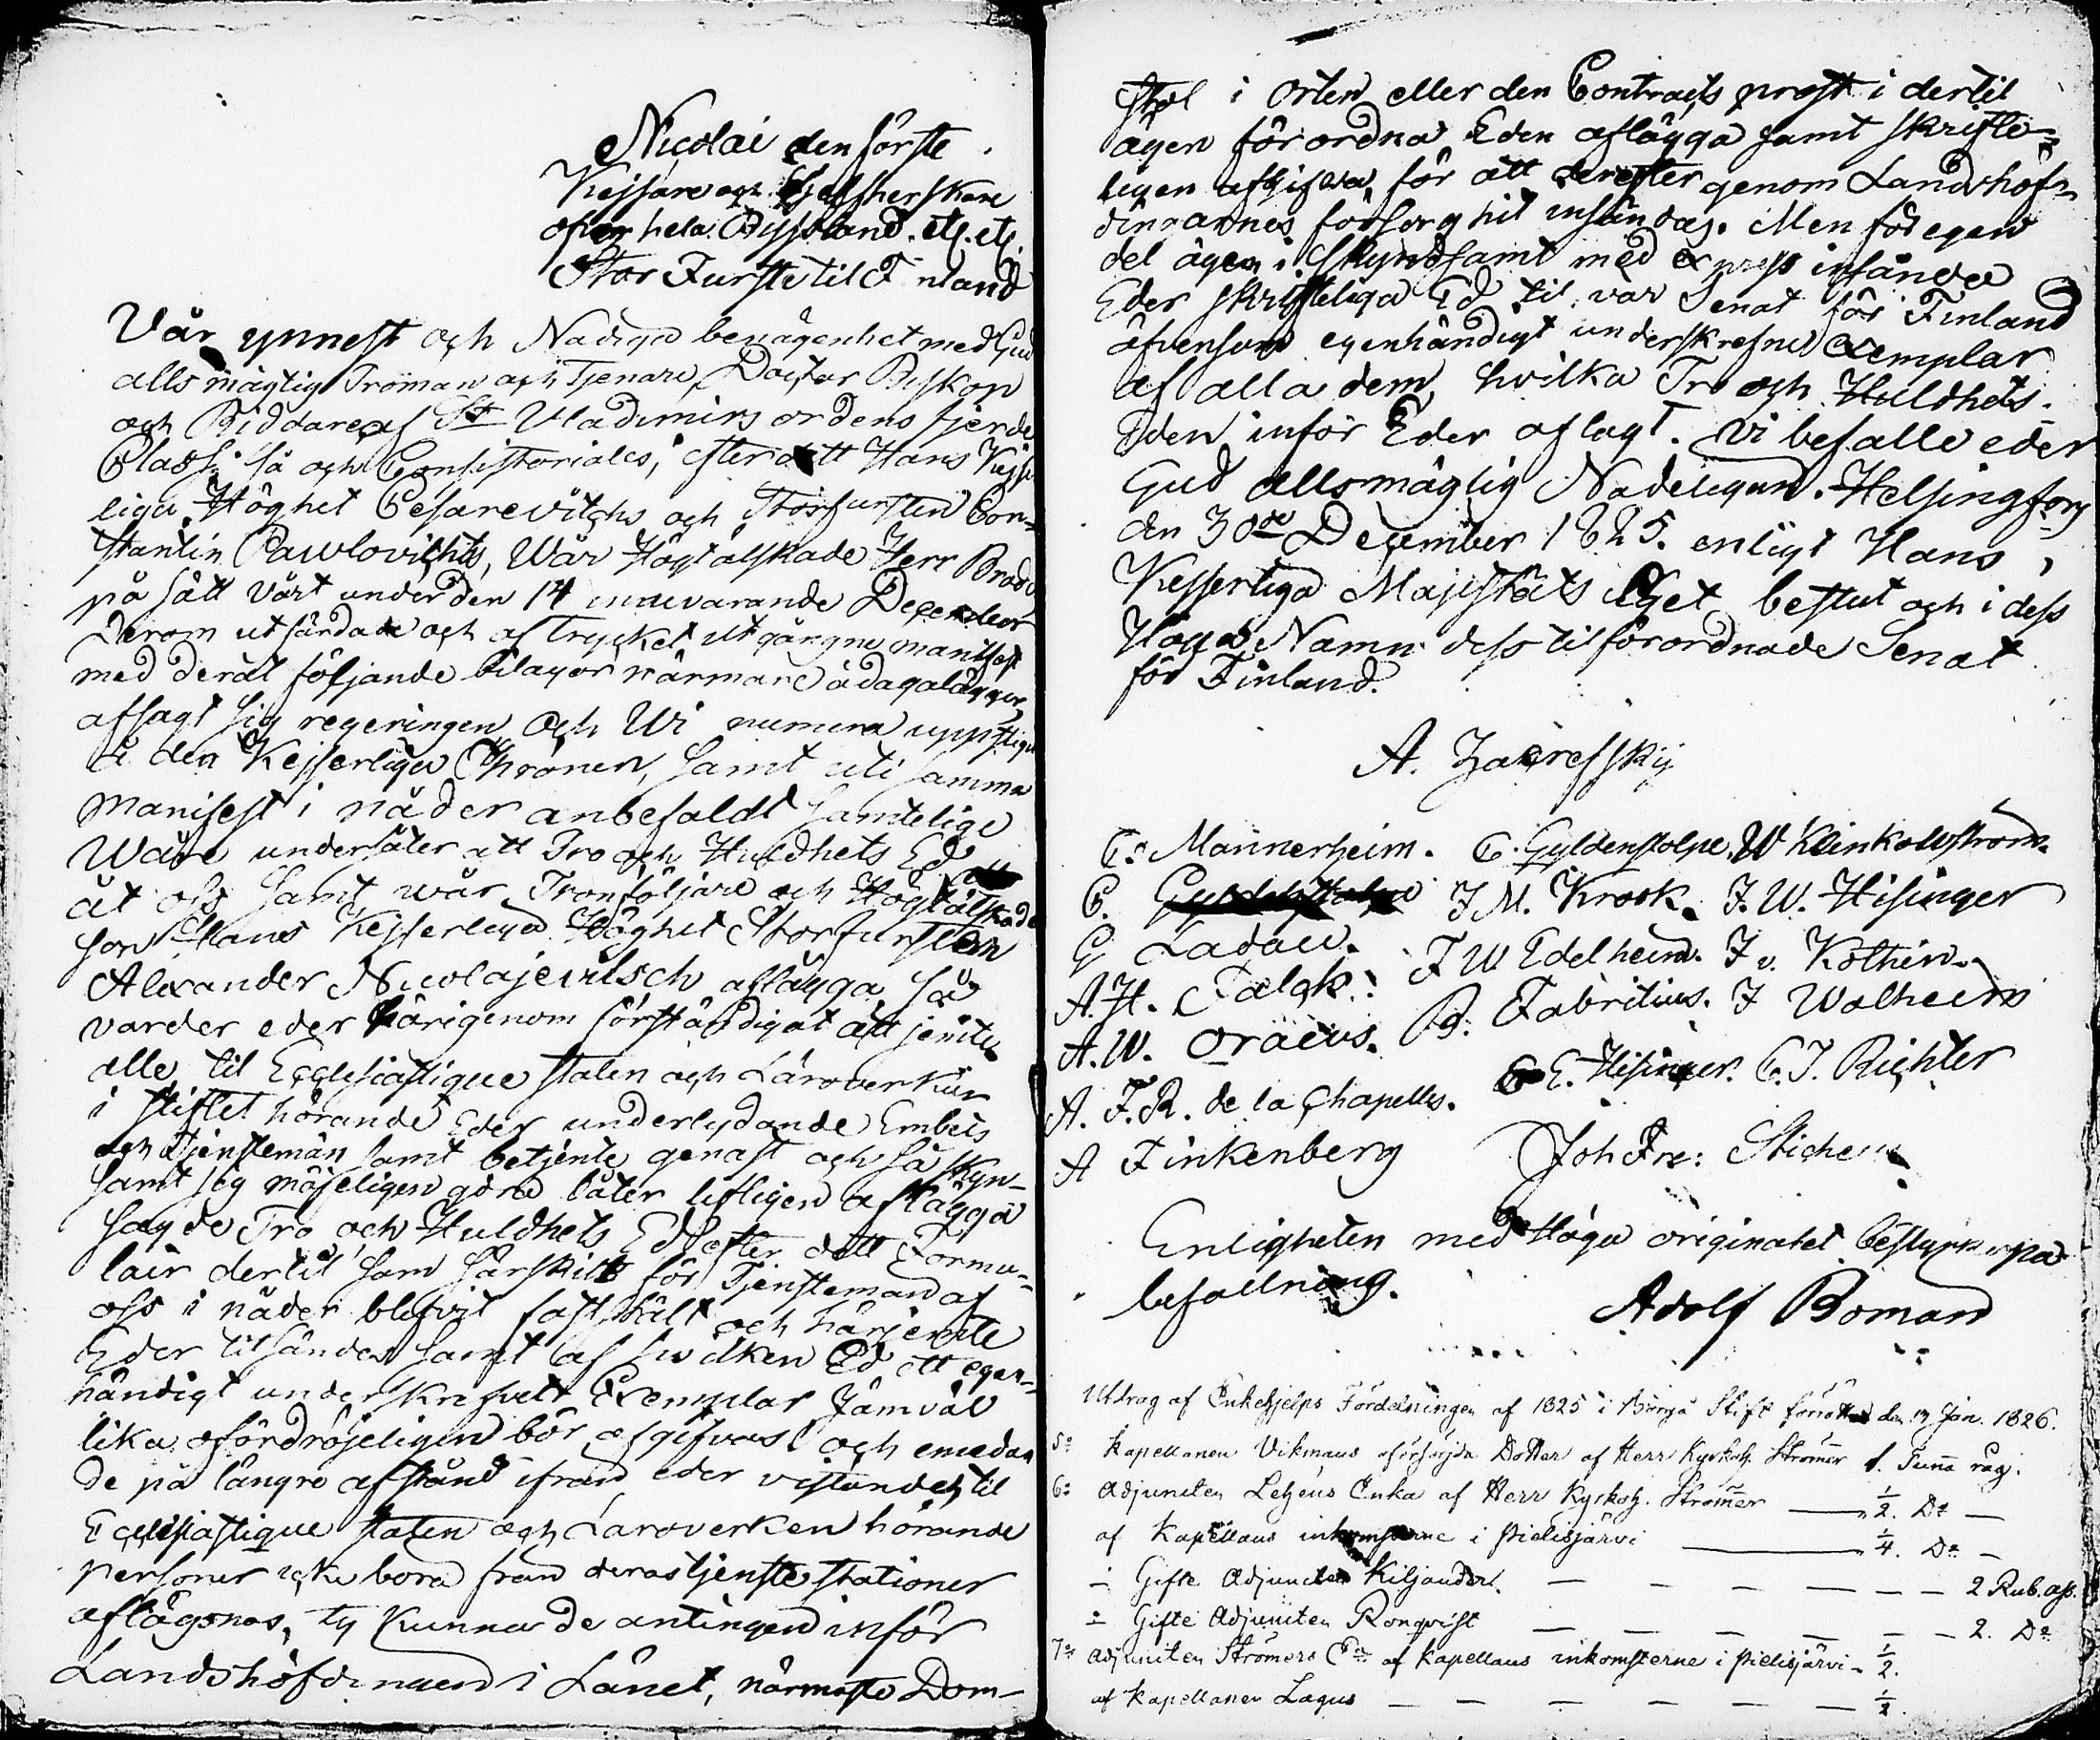 Nicolai den förste
Kejsare och Sjelfherskare
öfver hela Ryssland. etc. etc.
Stor Furste til Finland
Vår ynnest och Nådiga benägenhet med Gud
alls mägtig Troman och Tjenare, Doctor Biskop
och Riddare af St Vladimirs ordens fjerde
Class. så och Consistoriales, efter att Hans Kejser
liga Höghet Cesarevitchs och Storfursten Con-
stantin Pawlovichts, Wår Högtälskade Herr Broder
på sätt vårt under den 14 innevarande December
derom utfärdade och af trycket utgångne manifest
med deråt följande bilagor närmare ådagalägger
afsagt sig regeringen, och Wi numera uppstigit
å den Kejserliga Thronen, samt uti samma
manifest i nåder anbefaldt samtelige
Wåre undersåter att Tro och Huldhets Ed
åt oss samt wår Tronföljare och Högtälskade
son Hans Kejserliga Höghet Storfursten
Alexander Nicolajewitsch aflägga så
varder eder härigenom förständigat att jemte
alle til Ecclesiastique staten och Läroverken
i stiftet hörande Eder underlydande Embets
och Tjenstemän samt betjente genast och så skyn-
samt sig möjeligen göra låter lifligen aflägga
sagde Tro och Huldhets Ed efter dett Formu-
lair dertil som särskilt för Tjensteman af
oss i nåder blifvit fastställt och härjemte
Eder tilsändes samt af hvilken Ed ett egen-
händigt underskrifvett Exemplar jämväl
lika ofördröjeligen bör afgifvas och emedan
de på längre afstånd ifrån eder vistandes til
Ecclesiastique staten och Läroverken hörande
personer icke böra från deras tjenste stationer
aflägsnas, ty kunna de antingen inför
Landshöfdingen i Länet, närmaste Dom-
stol i Orten eller den Contracts prost i dertil
ägen förordna Eden aflägga samt skrifte-
ligen afgifva, för att derefter genom Landshöf-
dingarnes försorg hit insändas. Men för egen
del ägen i skyndsamt med express insända
Eder skrifteliga Ed til vår Senat för Finland
äfvensom egenhändigt underskrefne Exemplar
af alla dem, hvilka Tro och Huldhets
Eden inför Eder aflagt. Vi befalle eder
Gud allsmägtig Nådeligen. Helsingfors
den 30de December 1825. enligt Hans
Kejserliga Majestäts Eget beslut och i dess
Höga Namn dess tilförordnade Senat
för Finland.
A. Zakrefsskij
C. Mannerheim. C. Gyldenstolpe. W Klinkowström.
C. J M. Krook. J. W. Hisinger
G Ladau. F W Edelheim. J v. Kothen.
A. H. Falck. B. Fabritius. J Walheim
A. W. Oraeus. E. Hisinger. C. J. Richter
A. F. R. de la Chapelle.
A Finkenberg Joh Fre: Stichæus
Enligheten med Höga originalet bestyrker på
befallning.
Adolf Boman
Utdrag af Enkehjelps Fördelningen af 1825 i Borgå Stift förrättad den 19 Jan. 1826.
5o Kapellanen Vikmans oförsörjda Dotter af Herr Kyrkoh. Strömer 1. Tunna råg.
6o Adjuncten Letzeus Enka af Herr Kyrkoh. Strömer — 1/2. Do —
af Kapellans inkomsterne i Pielisjärvi — 1/4. Do —
— Gifte Adjuncten Kiljander. — — — — — — 2 Rub. ass.
— Gifte Adjuncten Ronqvist — — — — — — 2. Do
7o Adjuncten Strömers Ea af Kapellans inkomsterne i Pielisjärvi - 1/2.
af Kapellanen Lagus — — — — — — 1/2.